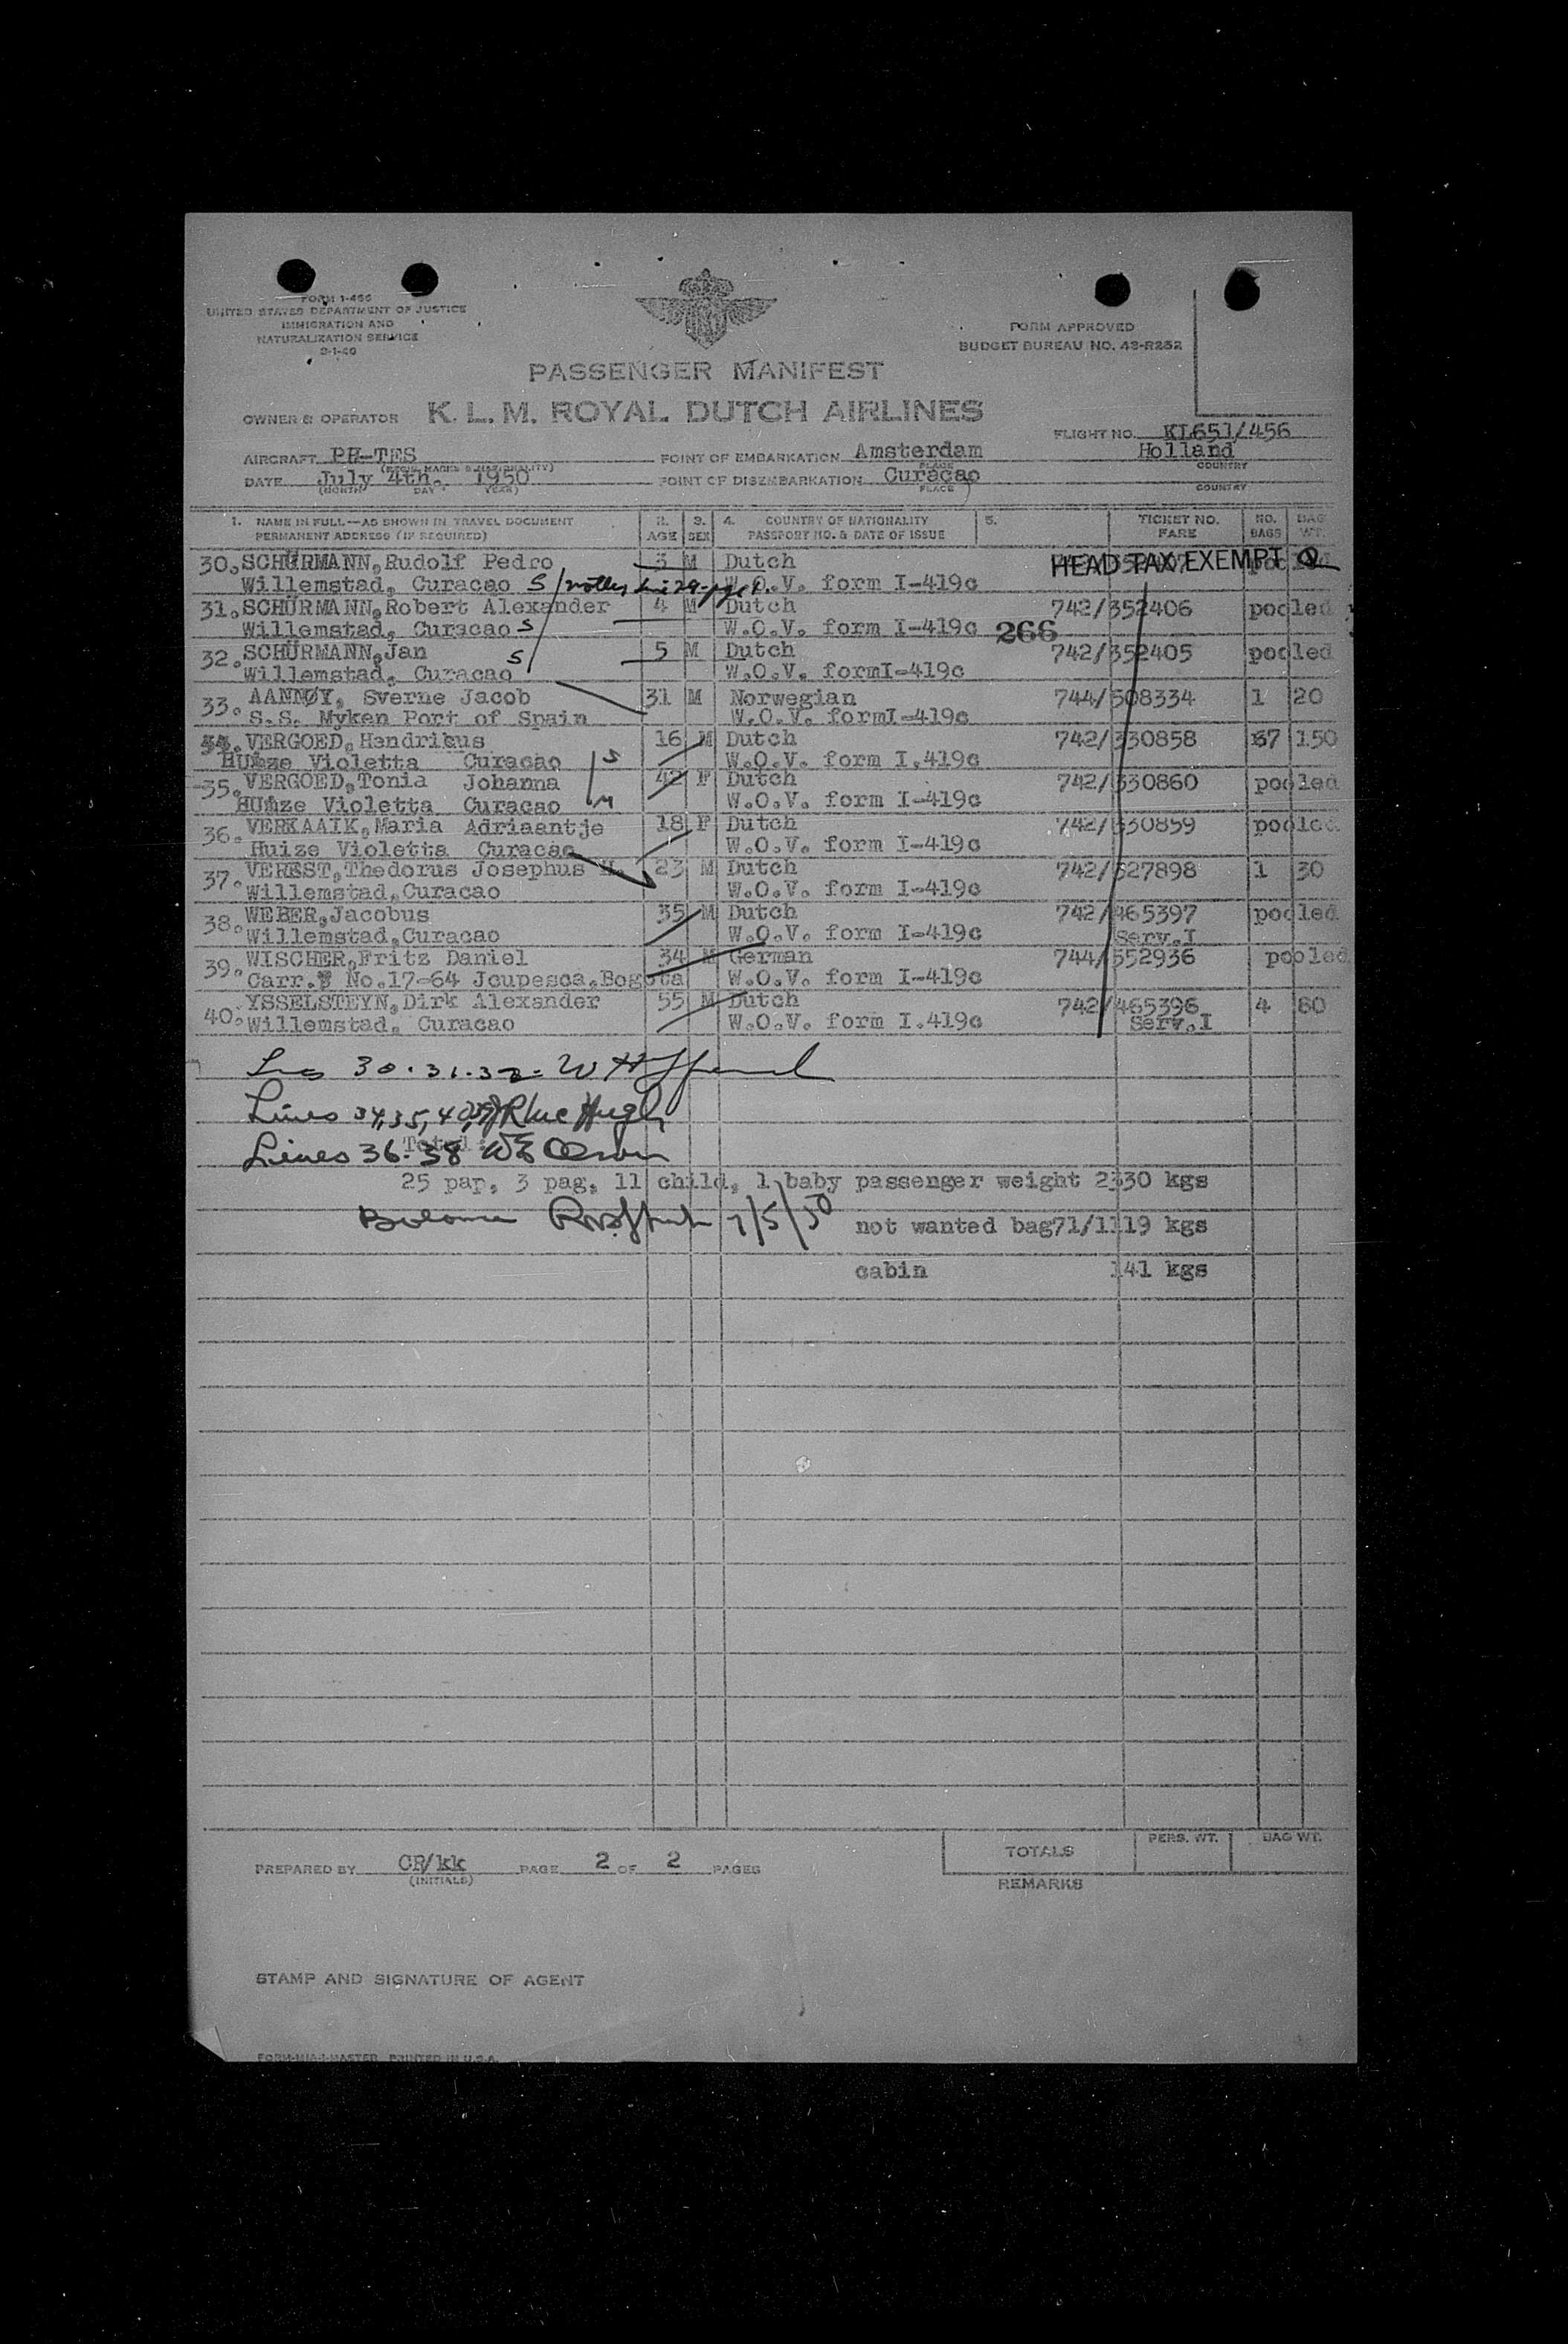 FORM I-466
UNITED STATES DEPARTMENT OF JUSTICE
IMMIGRATION AND
NATURALIZATION SERVICE
FORM APPROVED
BUDGET BUREAU NO. 43-R252
PASSENGER MANIFEST
OWNER & OPERATOR K.L.M. ROYAL DUTCH AIRLINES
FLIGHT NO. KL651/456
AIRCRAFT PH-TES POINT OF EMBARKATION Amsterdam Holland
(REGIS. MARKS & NATIONALITY) PLACE COUNTRY
DATE July 4th. 1950 POINT OF DISEMBARKATION Curaçao
(MONTH DAY YEAR) PLACE COUNTRY
1. NAME IN FULL—AS SHOWN IN TRAVEL DOCUMENT 2. 3. 4. COUNTRY OF NATIONALITY 5. TICKET NO. NO. BAG
PERMANENT ADDRESS (IF REQUIRED) AGE SEX PASSPORT NO. & DATE OF ISSUE FARE BAGS WT.
30. SCHÜRMANN, Rudolf Pedro 3 M Dutch HEAD TAX EXEMPT
Willemstad, Curacao S W.O.V. form I-419c
31. SCHÜRMANN, Robert Alexander 4 M Dutch 742/352406 pooled
Willemstad, Curacao S W.O.V. form I-419c 266
32. SCHÜRMANN, Jan S 5 M Dutch 742/352405 pooled
Willemstad, Curacao W.O.V. formI-419c
33. AANNØY, Sverne Jacob 31 M Norwegian 744/508334 1 20
S.S. Myken Port of Spain W.O.V. formI-419c
34. VERGOED, Hendrikus 16 M Dutch 742/330858 67 150
Huize Violetta Curacao S W.O.V. form I.419c
35. VERGOED, Tonia Johanna 42 F Dutch 742/330860 pooled
Huize Violetta Curacao M W.O.V. form I-419c
36. VERKAAIK, Maria Adriaantje 18 F Dutch 742/330859 pooled
Huize Violetta Curacao W.O.V. form I-419c
37. VEREST, Thedorus Josephus H. 23 M Dutch 742/527898 1 30
Willemstad, Curacao W.O.V. form I-419c
38. WEBER, Jacobus 35 M Dutch 742/465397 pooled
Willemstad, Curacao W.O.V. form I-419c Serv.I
39. WISCHER, Fritz Daniel 34 M German 744/552936 pooled
Carr. No.17-64 Jcupesca, Bogota W.O.V. form I-419c
40. YSSELSTEYN, Dirk Alexander 55 M Dutch 742/465396 4 80
Willemstad, Curacao W.O.V. form I.419c Serv.I
30.31.32
Lines 34,35,40,
Total
Lines 36-38
25 pap, 3 pag, 11 child, 1 baby passenger weight 2330 kgs
Balance 7/5/50 not wanted bag71/1119 kgs
cabin 141 kgs
PERS. WT. BAG WT.
TOTALS
PREPARED BY CR/kk PAGE 2 OF 2 PAGES
(INITIALS)
REMARKS
STAMP AND SIGNATURE OF AGENT
PRINTED IN U.S.A.